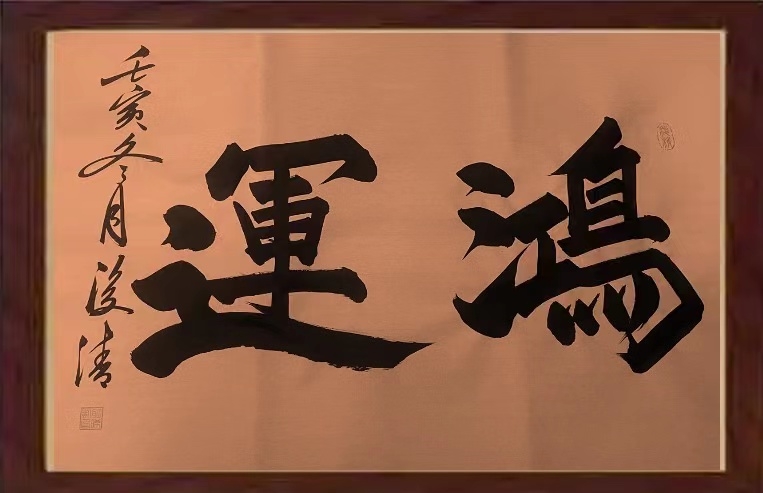 鴻運
壬寅冬月俊清